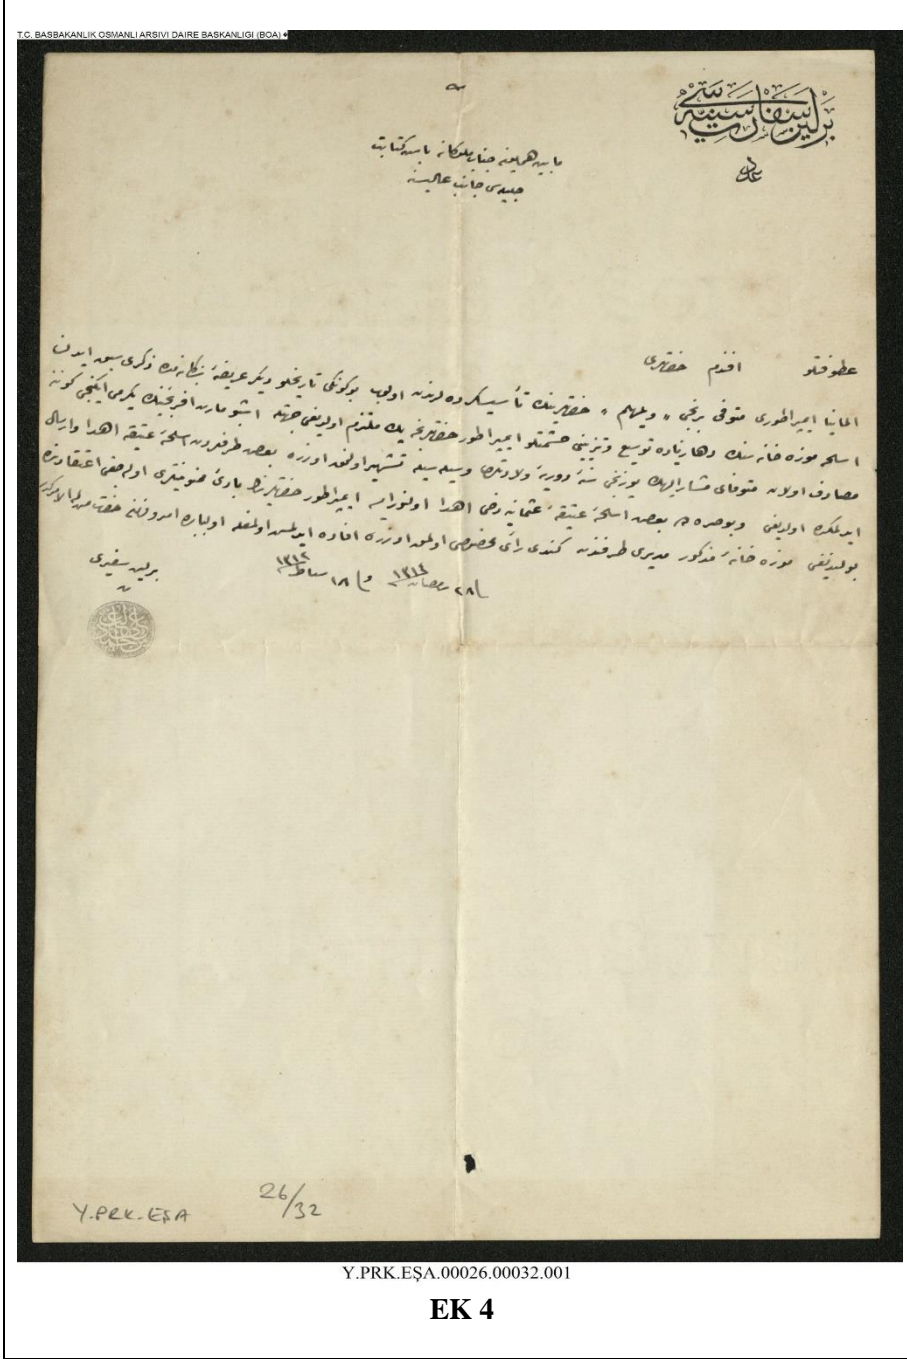 T.C. BASBAKANLIK OSMANLI ARSIVI DAIRE BASKANLIGI (BOA)
برلین سفارت سنیه‌سی
عدد
مابین همایون جناب ملوکانه باش کتابت
جلیله‌سی جانب عالیسنه
عطوفتلو افندم حضرتلری
المانیا ایمپراطوری متوفی برنجی « ویلهلم » حضرتلرینك تأسیسکرده‌لرندن اولوب بوکونکی تاریخلو دیکر عریضهٔ بندکانه‌مده ذکری سبق ایدن
اسلحه موزه خانه سنك دها زیاده توسیع و تزیینی حشمتلو ایمپراطور حضرتلرنجه پك ملتزم اولدیغی جهتله اشبو مارت افرنجینك یکرمی ایکنجی کوننه
مصادف اولان متوفای مشار الیهك یوزنجی سنهٔ دوریهٔ ولادتلری وسیله سیله تشهیر اولنمق اوزره بعض طرفلردن اسلحهٔ عتیقه اهدا و ارسال
ایدلمکده اولدیغی و بوصره‌ده بعض اسلحهٔ عتیقهٔ عثمانیه دخی اهدا اولنور ایسه ایمپراطور حضرتلرینك بادئ ممنونیتلری اوله‌جغی اعتقادنده
بولندیغنی موزه خانهٔ مذکور مدیری طرفندن کندی رأی مخصوصی اولمق اوزره افاده ایدلمش اولمغله اولبابده امر و فرمان حضرت من له الامرکدر
فی ٢٨ رمضان ١٣١٤ و فی ١٨ شباط ١٣١٢
برلین سفیری
Y.PRK.EŞA 26/32
Y.PRK.EŞA.00026.00032.001
EK 4